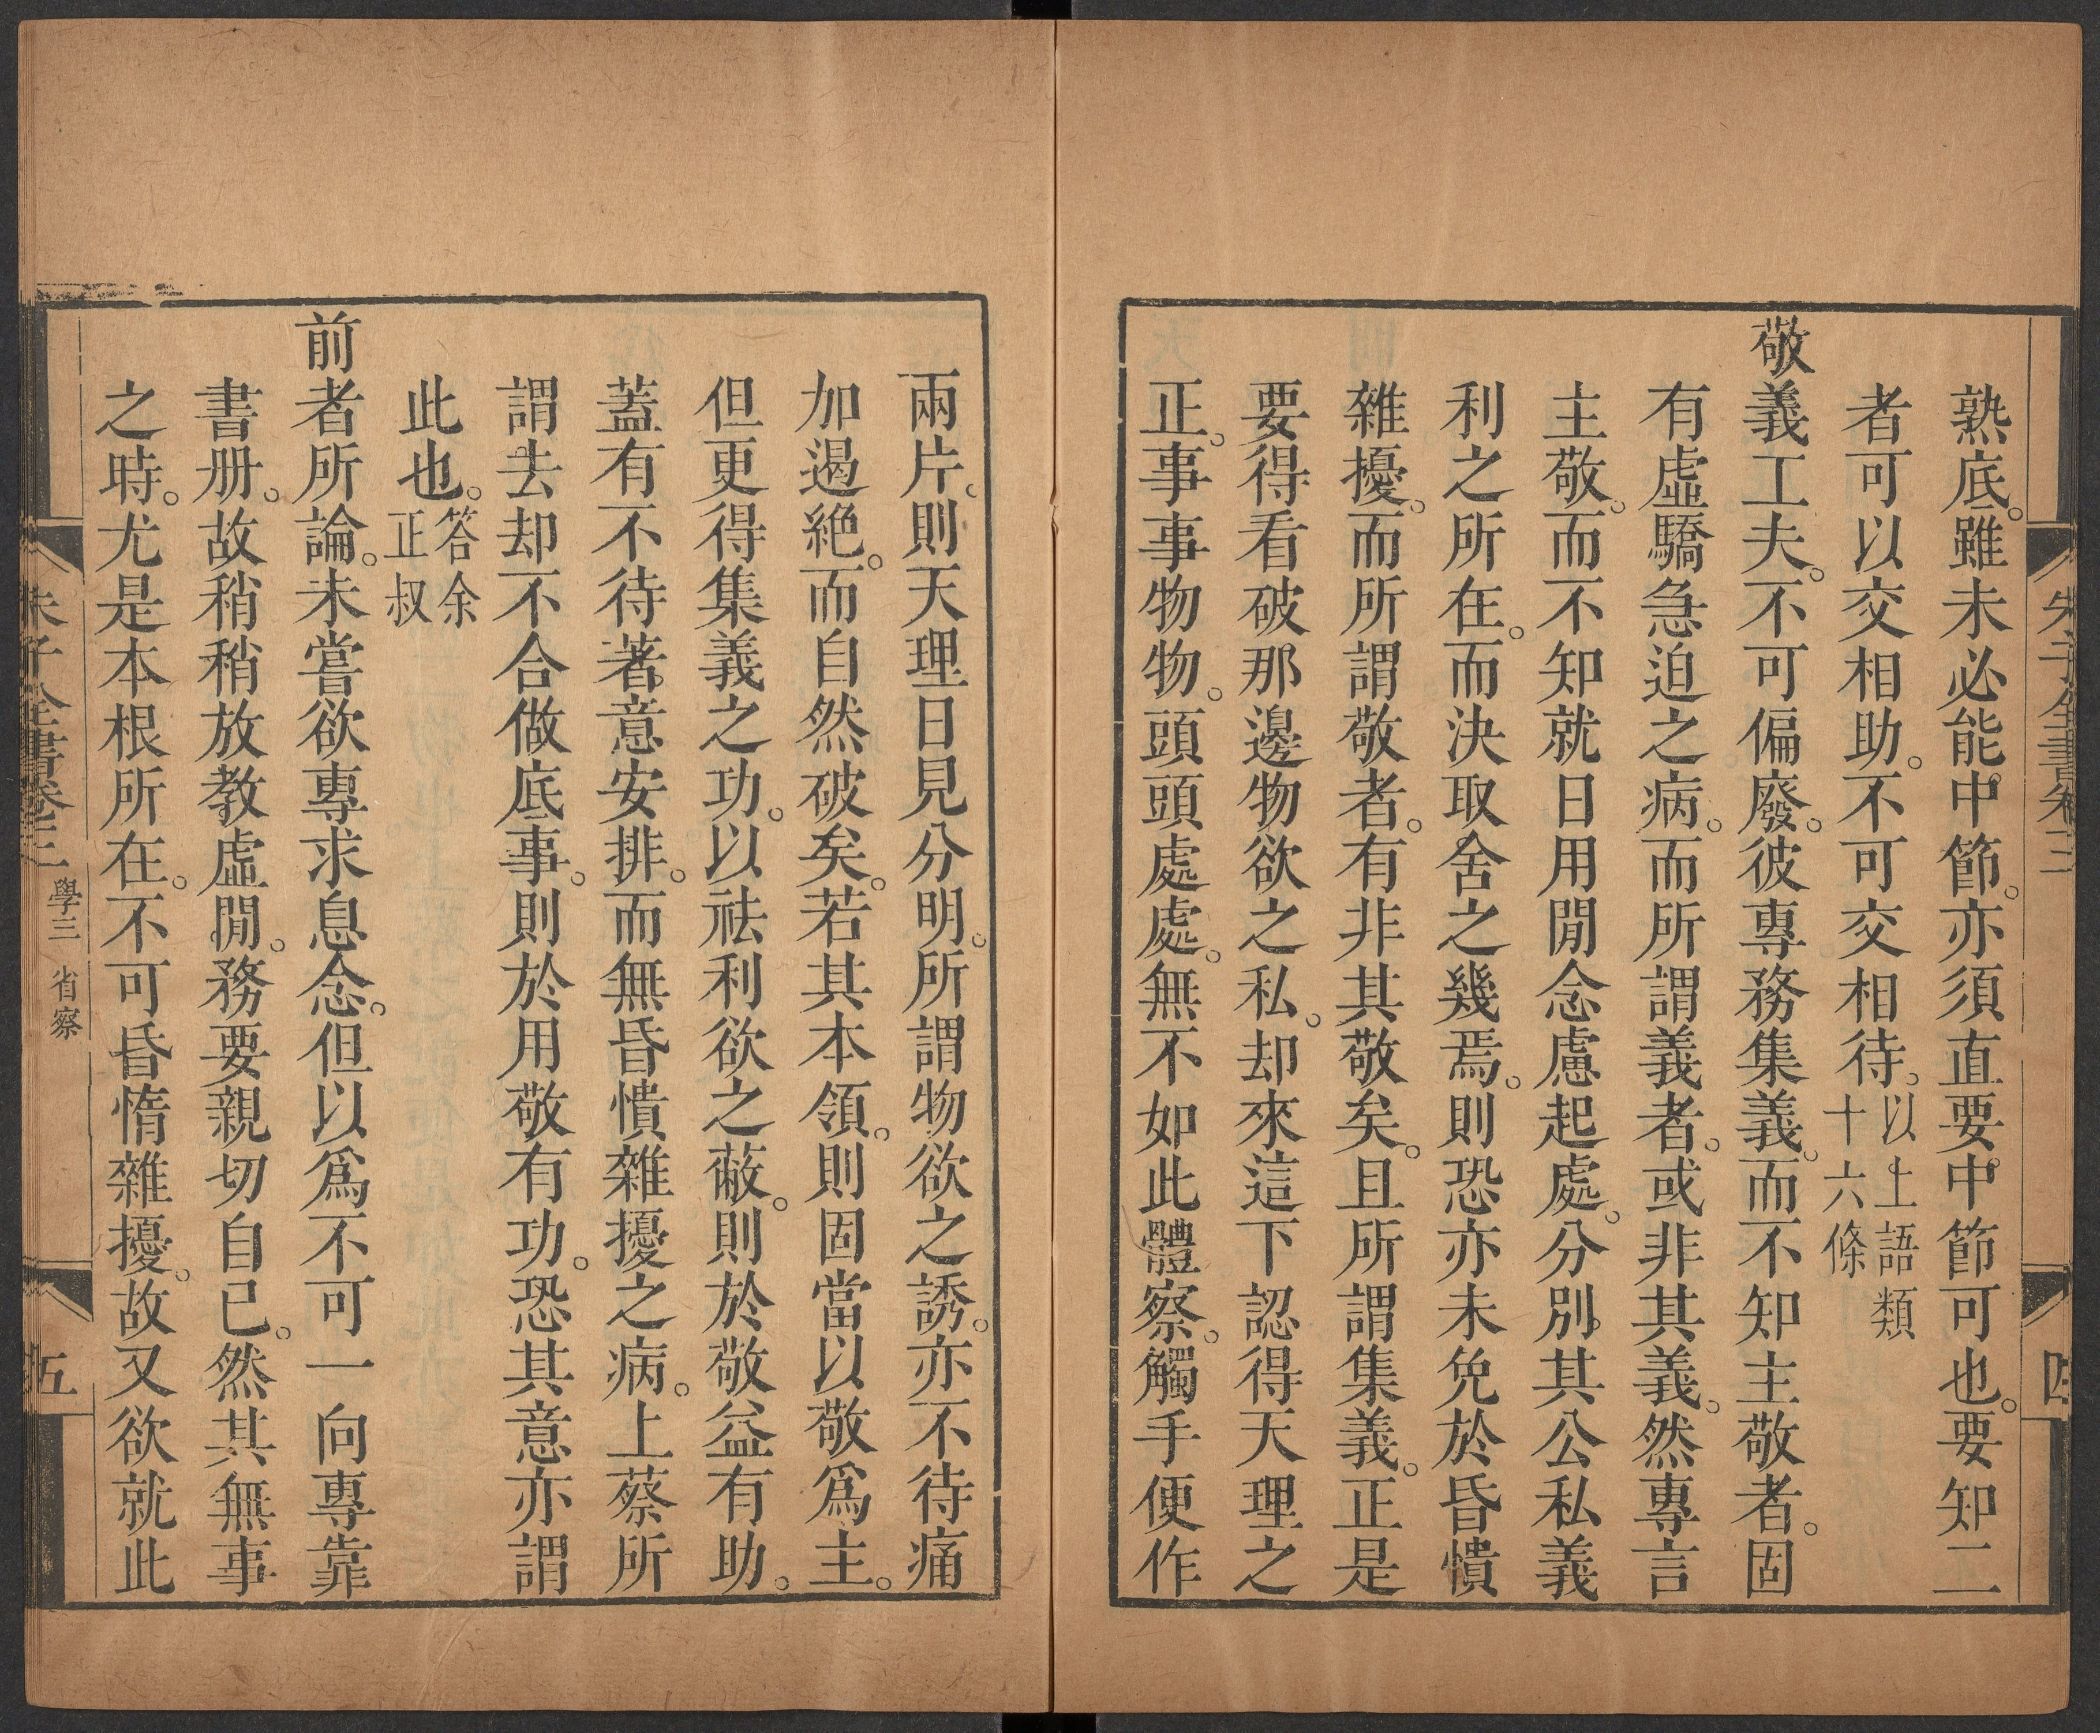 熟底。雖未必能中節。亦須直要中節可也。要知二
者可以交相助。不可交相待。以上語類
十六條
敬義工夫。不可偏廢。彼專務集義。而不知主敬者。固
有虛驕急迫之病。而所謂義者。或非其義。然專言
主敬。而不知就日用閒念慮起處。分別其公私義
利之所在。而決取舍之幾焉。則恐亦未免於昏憒
雜擾。而所謂敬者。有非其敬矣。且所謂集義。正是
要得看破那邊物欲之私。却來這下認得天理之
正。事事物物。頭頭處處。無不如此體察。觸手便作
朱子全書卷三
四
兩片。則天理日見分明。所謂物欲之誘。亦不待痛
加遏絶。而自然破矣。若其本領。則固當以敬爲主。
但更得集義之功。以祛利欲之蔽。則於敬益有助。
蓋有不待著意安排。而無昏憒雜擾之病。上蔡所
謂去却不合做底事。則於用敬有功。恐其意亦謂
此也。答余
正叔
前者所論。未嘗欲專求息念。但以爲不可一向專靠
書册。故稍稍放教虛閒。務要親切自已。然其無事
之時。尤是本根所在。不可昏惰雜擾。故又欲就此
朱子全書卷三 學三 省察
五